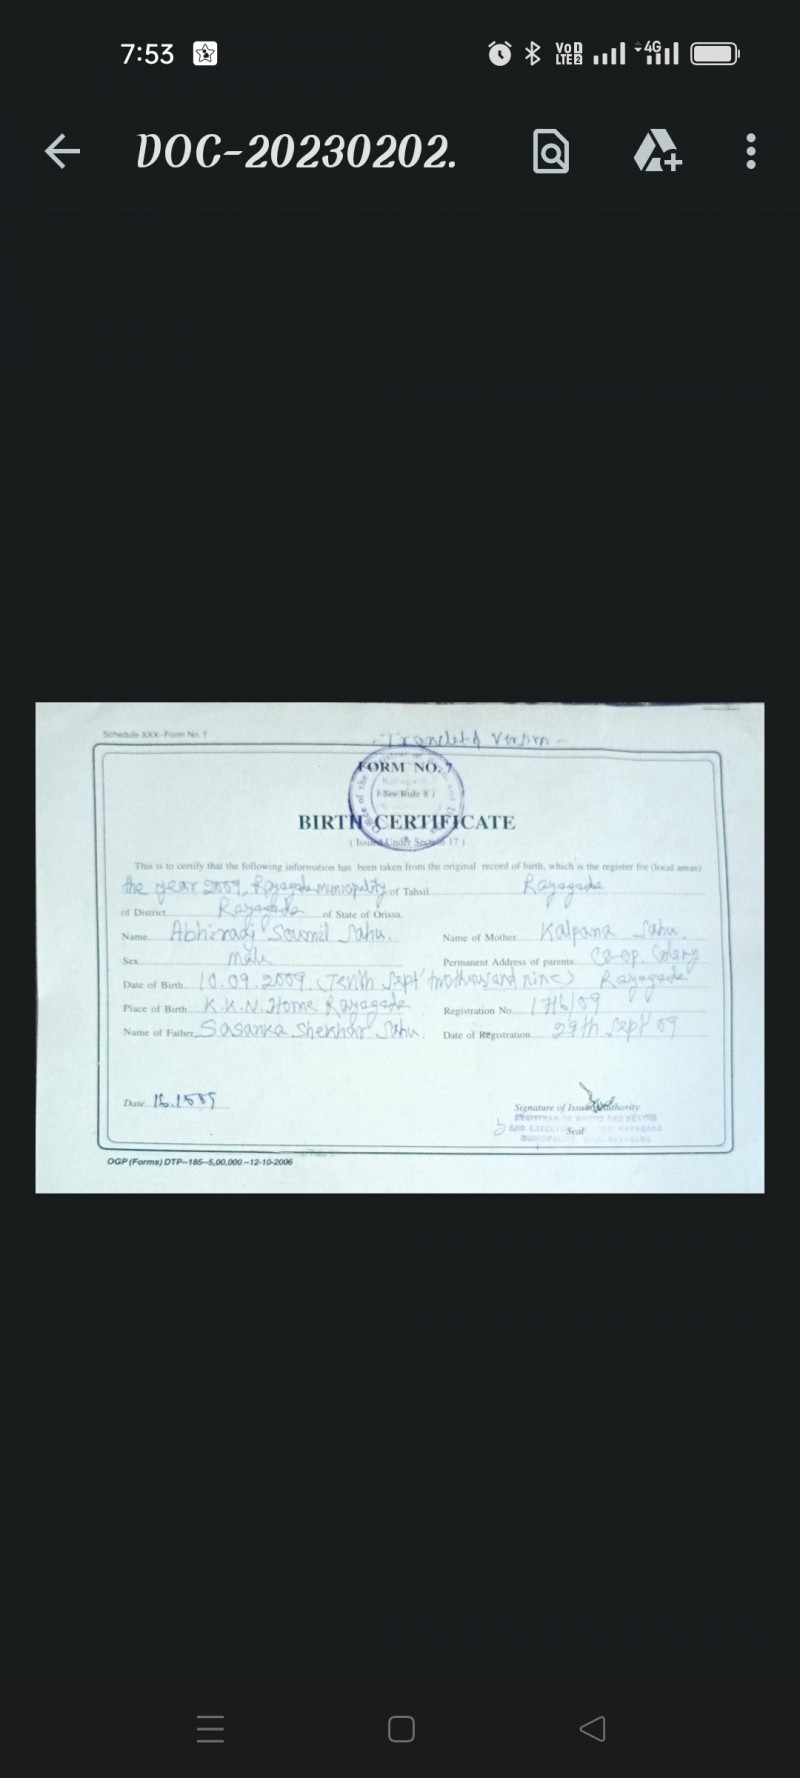 7:53 VoD LTE2 4G
DOC-20230202.
Schedule XXX-Form No. 7
Version -
FORM NO. 7
( See Rule 8 )
BIRTH CERTIFICATE
( Issued Under Section 17 )
This is to certify that the following information has been taken from the original record of birth, which is the register for (local areas)
the year 2009, Rayagada Municipality of Tahsil Rayagada
of District Rayagada of State of Orissa.
Name Soumil Sahu. Name of Mother Kalpana Sahu.
Sex Male Permanent Address of parents Co-op. Colony
Date of Birth 10.09.2009. (Tenth Sept' and nine) Rayagada
Place of Birth K.K.N. Home Rayagada Registration No. /09
Name of Father Sasanka Shekhar Sahu. Date of Registration 29th Sept' 09
Date
Signature of Issuing Authority
Seal
OGP (Forms) DTP-185-5,00,000-12-10-2006